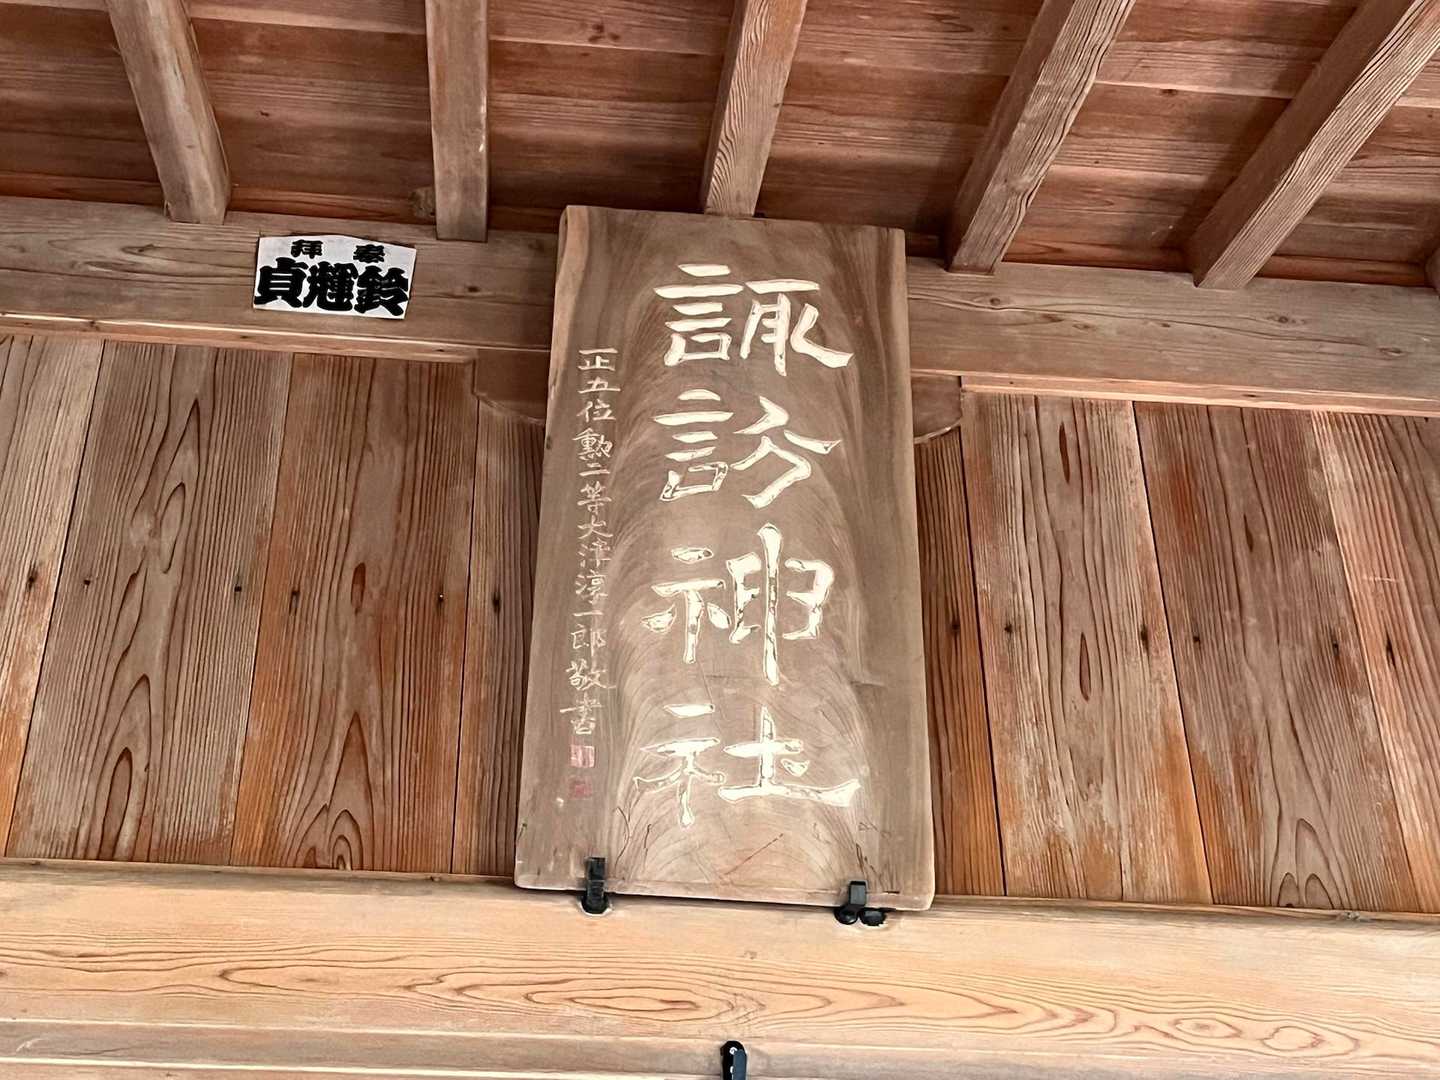 諏訪神社
正五位勲二等大津淳一郎敬書
奉拝
鈴輝貞